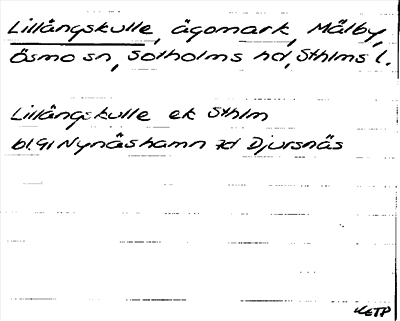 Lillängskulle, ägomark, Mälby,
Ösmo sn, Sotholms hd, Sthlms l.
Lillängskulle ek Sthlm
bl. 91 Nynäshamn 7d Djursnäs
KETP